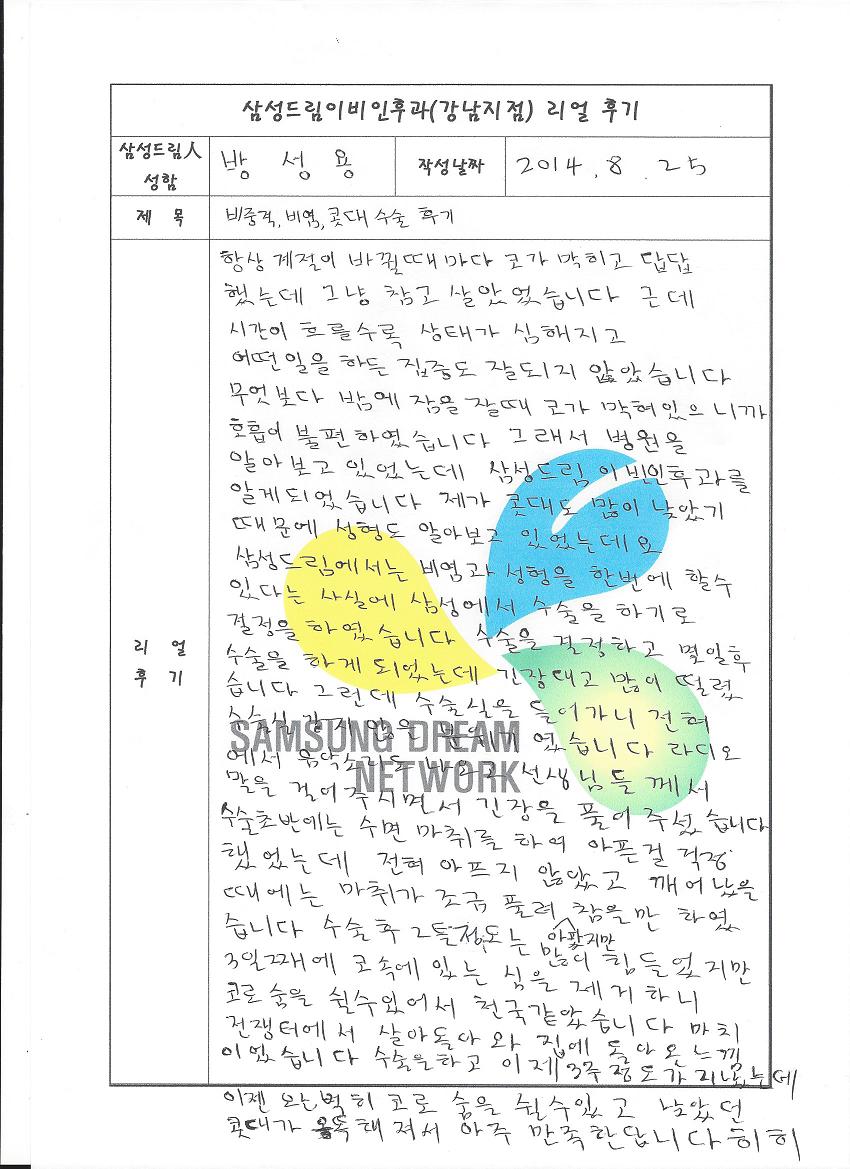 삼성드림이비인후과(강남지점) 리얼 후기
삼성드림人 성함
방 성 용
작성날짜
2014. 8. 25
제 목
비중격, 비염, 콧대 수술 후기
리 얼 후 기
항상 계절이 바뀔때마다 코가 막히고 답답
했는데 그냥 참고 살았었습니다 근데
시간이 흐를수록 상태가 심해지고
어떤일을 하든 집중도 잘되지 않았습니다
무엇보다 밤에 잠을 잘때 코가 막혀있으니까
호흡이 불편하였습니다 그래서 병원을
알아보고 있었는데 삼성드림 이빈인후과를
알게되었습니다 제가 콧대도 많이 낮았기
때문에 성형도 알아보고 있었는데요
삼성드림에서는 비염과 성형을 한번에 할수
있다는 사실에 삼성에서 수술을 하기로
결정을 하였습니다 수술을 결정하고 몇일후
수술을 하게 되었는데 긴장대고 많이 떨렸
습니다 그런데 수술실을 들어가니 전혀
수술실 같지 않은 분위기 였습니다 라디오
에서 음악소리도 나오고 선생님들 께서
말을 걸어주시면서 긴장을 풀어 주셨습니다
수술초반에는 수면 마취를 하여 아픈걸 걱정
했었는데 전혀 아프지 않았고 깨어났을
때에는 마취가 조금 풀려 참을만 하였
습니다 수술후 2틀정도는 아팠지만 많이 힘들었지만
3일째에 코속에 있는 심을 제거하니
코로 숨을 쉴수있어서 천국같았습니다 마치
전쟁터에서 살아돌아 와 집에 돌아온느낌
이었습니다 수술을하고 이제 3주정도가 지났는데
이젠 완벽히 코로 숨을 쉴수있고 낮았던
콧대가 오똑해 져서 아주 만족한답니다 히히
SAMSUNG DREAM
NETWORK